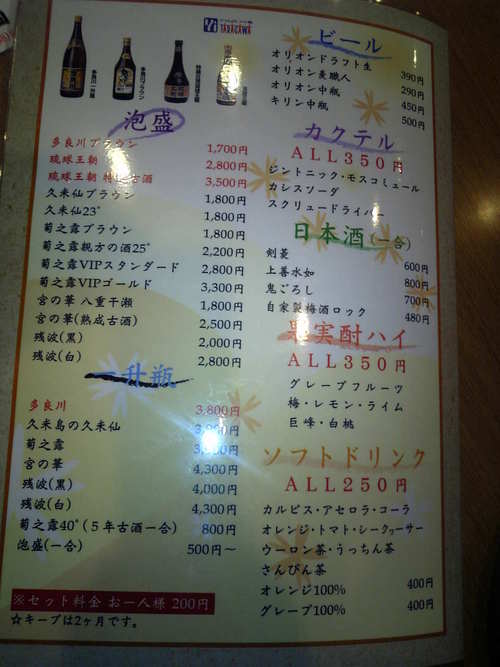 TARAGAWA
多良川一升瓶
多良川ブラウン
泡盛
多良川ブラウン 1,700円
琉球王朝 2,800円
琉球王朝 特 古酒 3,500円
久米仙ブラウン 1,800円
久米仙23° 1,800円
菊之露ブラウン 1,800円
菊之露親方の酒25° 2,200円
菊之露VIPスタンダード 2,800円
菊之露VIPゴールド 3,300円
宮の華 八重干瀬 1,800円
宮の華(熟成古酒) 2,500円
残波(黒) 2,000円
残波(白) 2,800円
一升瓶
多良川 3,800円
久米島の久米仙
菊之露
宮の華 4,300円
残波(黒) 4,000円
残波(白) 4,300円
菊之露40°(5年古酒一合) 800円
泡盛(一合) 500円～
※セット料金 お一人様 200円
☆キープは2ヶ月です。
ビール
オリオンドラフト生 390円
オリオン麦職人 290円
オリオン中瓶 450円
キリン中瓶 500円
カクテル
ALL350円
ジントニック・モスコミュール
カシスソーダ
スクリュードライバー
日本酒(一合)
剣菱 600円
上善水如 800円
鬼ごろし 700円
自家製梅酒ロック 480円
果実酎ハイ
ALL350円
グレープフルーツ
梅・レモン・ライム
巨峰・白桃
ソフトドリンク
ALL250円
カルピス・アセロラ・コーラ
オレンジ・トマト・シークヮーサー
ウーロン茶・うっちん茶
さんぴん茶
オレンジ100% 400円
グレープ100% 400円